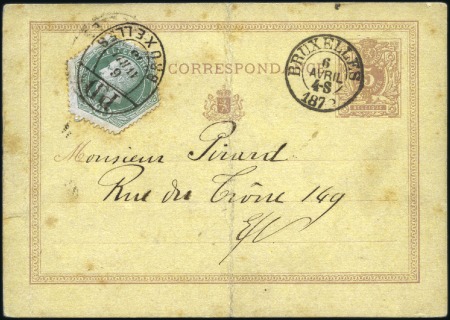 CORRESPOND
BRUXELLES
6
AVRIL
4-S
187
BRUXELLES
5
Monsieur Pirard
Rue du Trône 149
E/V